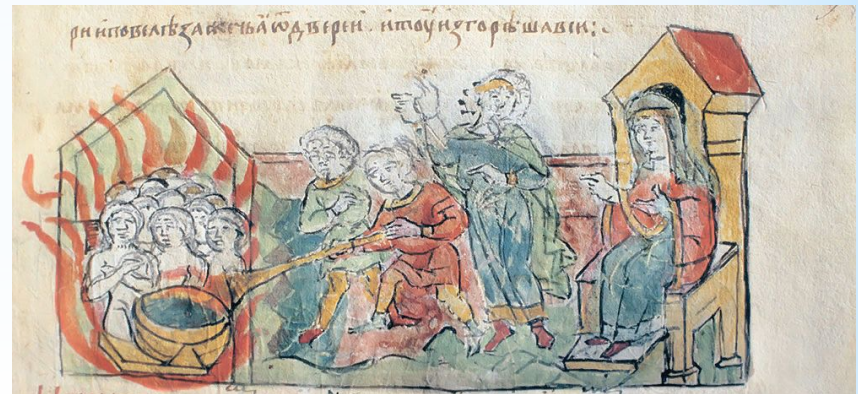 рѝ и повелѣ зажечьꙗ ѿ двереи . и тоу изгорѣша вси :·